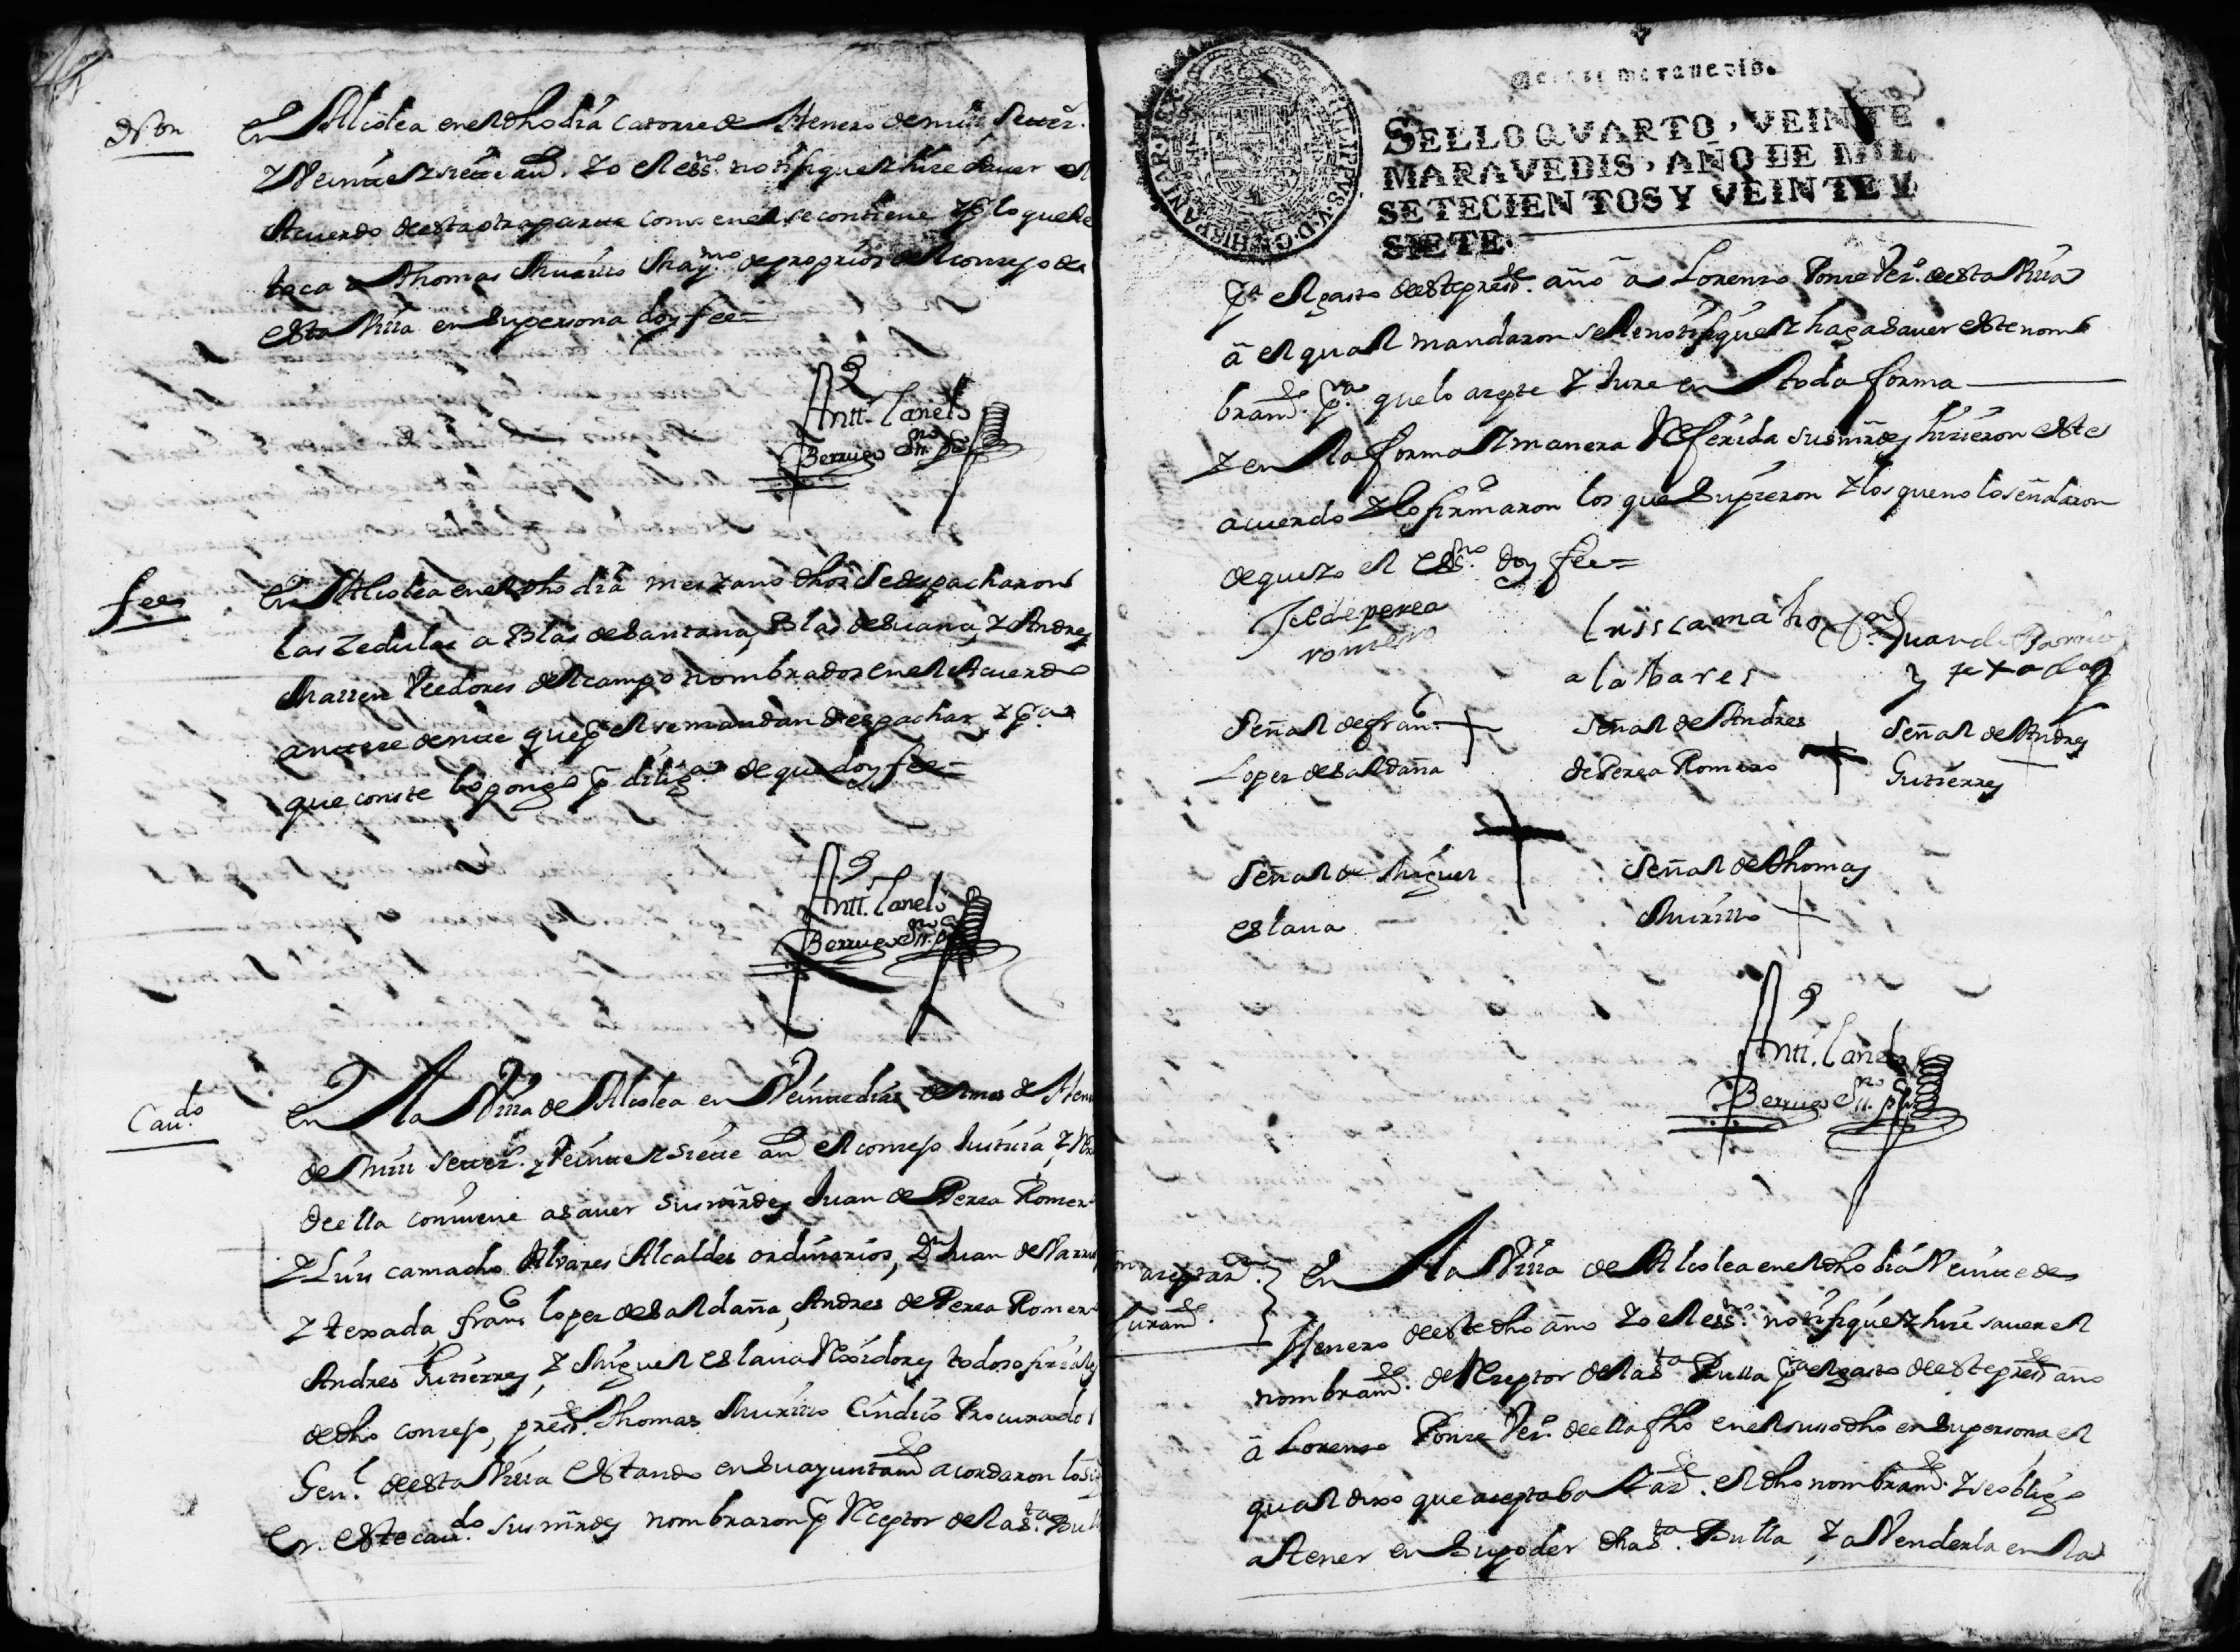 Nton
En Alcolea en el dho dia catorze de Henero de mill settez.
y Veinte y siette añ. yo el ess.no notifique y hize saver el
Acuerdo de esta otra parte como en el se contiene y p.r lo que le
toca a Thomas Murillo May.mo de proprios del conzejo de
esta Villa en su persona doy fee=
Antt. Canelo
Berrugo Ss.no pu.
fee
En Alcolea en el dho dia mes y año dhos se despacharon
las zedulas a Blas de Santana, Blas de Siana, y Andres
Marin Veedores del campo nombrados en el Acuerdo
antezedente que p.r el se mandan despachar, y p.a
que conste lo pongo p.r dilig.a de que doy fee=
Antt. Canelo
Berrugo Ss.no pu.
Cau.do
En la Villa de Alcolea en Veinte dias del mes de Hen
de mill settez. y Veinte y siette añ el conzejo Justizia, y
de ella conviene a saver sus mrds Juan de Perea Romer
y Luis camacho Alvares Alcaldes ordinarios, Dn Juan de
y texada, fran.co lopez de Saldaña, Andres de Perea Romer
Andres Gutierres, y Miguel eslava Rexidores todos ofiziales
de dho conzejo, press.te Thomas Murillo Cindico Procurador
Gen.l de esta Villa estando en su ayuntam.to acordaron lo sig
En este cau.do sus mrds nombraron p.r Rezeptor de la s.ta Bull
maravedis.
SELLO QVARTO, VEINTE
MARAVEDIS, AÑO DE MIL
SETECIENTOS Y VEINTE Y
SIETE.
PHILIPPVS.V.D.G. HISPANIAR.REX
p.a el gasto de este press.te año a Lorenzo Ponze Vez.o de esta Villa
a el qual mandaron se le notifique y haga saver este nom
bram.to p.a que lo azepte y Jure en toda forma
y en la forma y manera Referida sus mrds hizieron este
acuerdo y lo firmaron los que supieron y los que no lo señalaron
de que yo el ess.no doy fee=
Ju de perea
romero
luis camacho
alvares
Dn Juan de
y texada
Señal de fran.co
Lopez de Saldaña
Señal de Andres
de Perea Romero
Señal de Andres
Gutierres
Señal de Miguel
eslava
Señal de Thomas
Murillo
Antt. Canelo
Berrugo Ss.no pu.
azeptaz.on
Juram.to
En la Villa de Alcolea en el dho dia Veinte de
Henero de este dho año yo el ess.no notifique y hize saver el
nombram.to de Rezeptor de la s.ta Bulla p.a el gasto de este press.te año
a Lorenzo Ponze Vez.o de ella fho en el suso dho en su persona el
qual dixo que azeptaba y azt.o el dho nombram.to y se obligo
a tener en su poder dha s.ta Bulla, y a Venderla en la